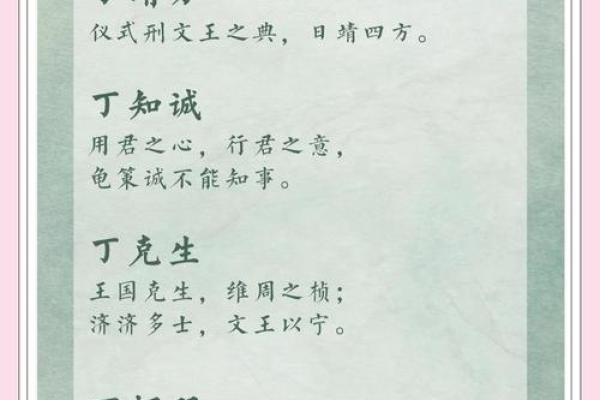 仪式刑文王之典，日靖四方。
丁知诚
用君之心，行君之意，
龟策诚不能知事。
丁克生
王国克生，维周之桢；
济济多士，文王以宁。